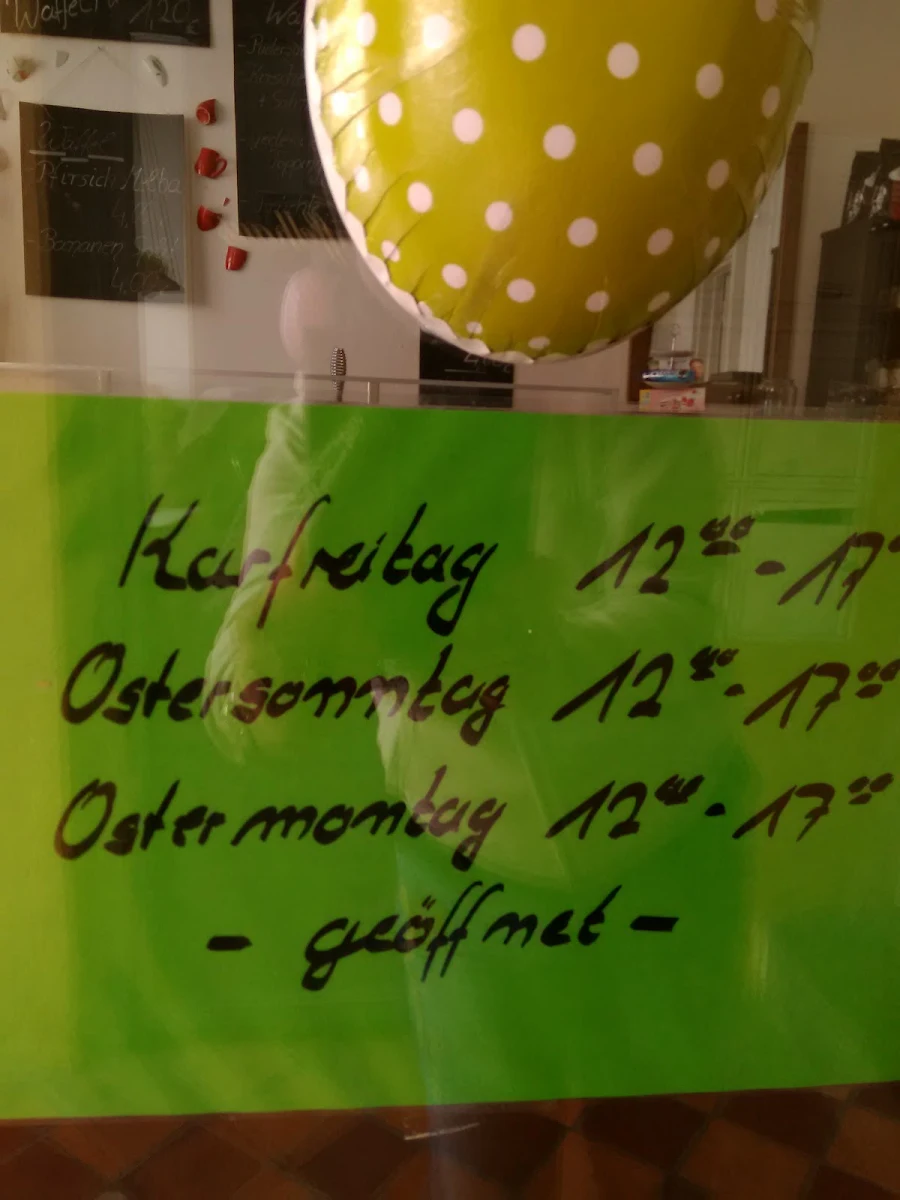 Waffel 1,20€
2. Waffel
Pfirsich Melba
4,
Bananen
4,0
Karfreitag 12⁰⁰ - 17
Ostersonntag 12⁰⁰ - 17⁰⁰
Ostermontag 12⁰⁰ - 17⁰⁰
- geöffnet -